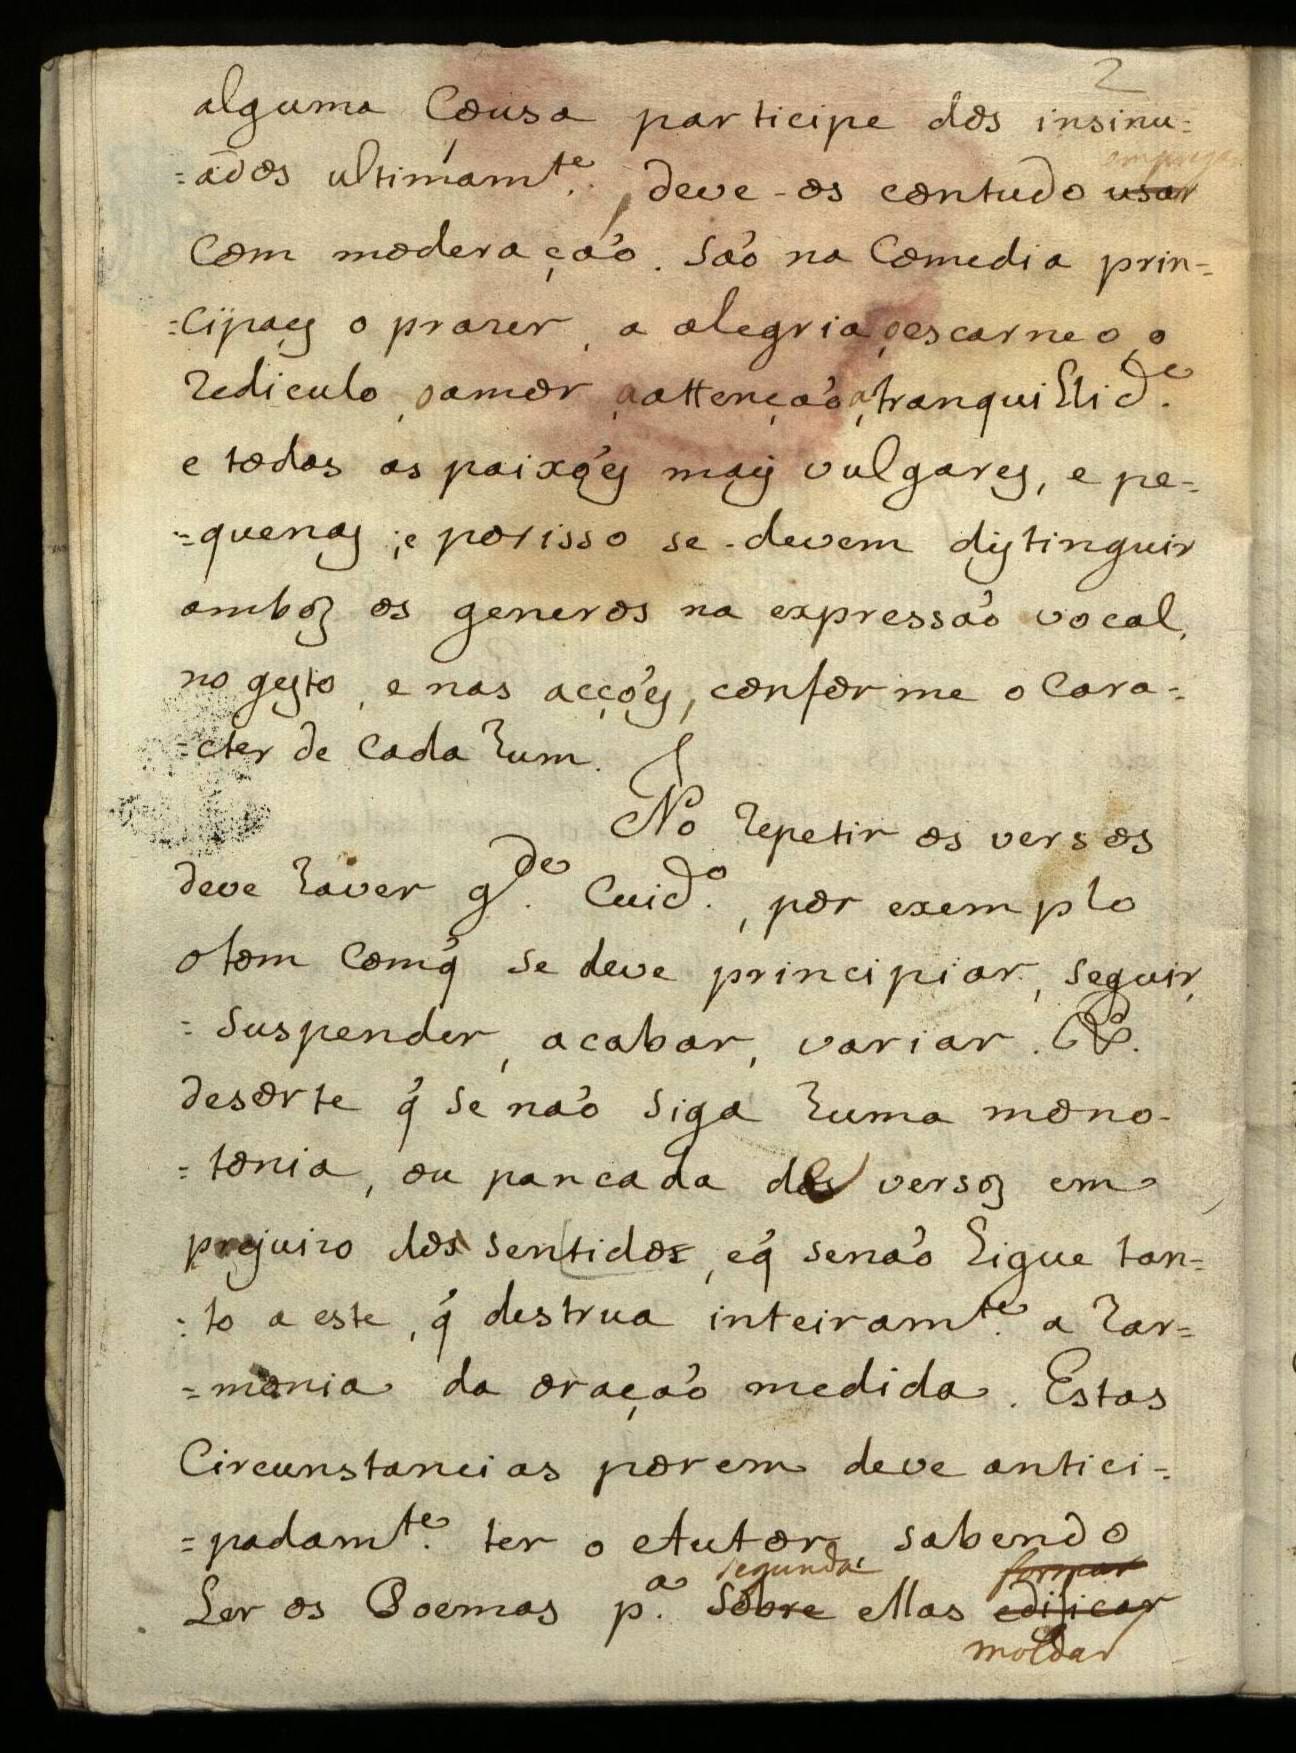 2
alguma Cousa participe dos insinu=
=ados ultimamte., deve-os comtudo usar
Com moderação. São na Comedia prin=
=cipaes o prazer, a alegria, o escarneo, o
rediculo, o amor, a attenção, a tranquillide.
e todas as paixões mais vulgares, e pe=
=quenas; e por isso se-devem distinguir
ambos os generos na expressão vocal,
no gesto, e nas acções, conforme o Cara=
=cter de Cada hum.
No repetir os versos
deve haver gde. Cuido., por exemplo
o tom Com q̃ se deve principiar, seguir,
=suspender, acabar, variar. &.
desorte q̃ se não siga huma mono-
=tonia, ou pancada dos versos em
prejuizo dos sentidos, e q̃ se não ligue tan=
=to a este, q̃ destrua inteiramte. a har=
=monia da oração medida. Estas
Circunstancias porem deve antici=
=padamte. ter o Autor, sabendo
segundo formar
Ler os Poemas pa. sobre ellas edificar
moldar